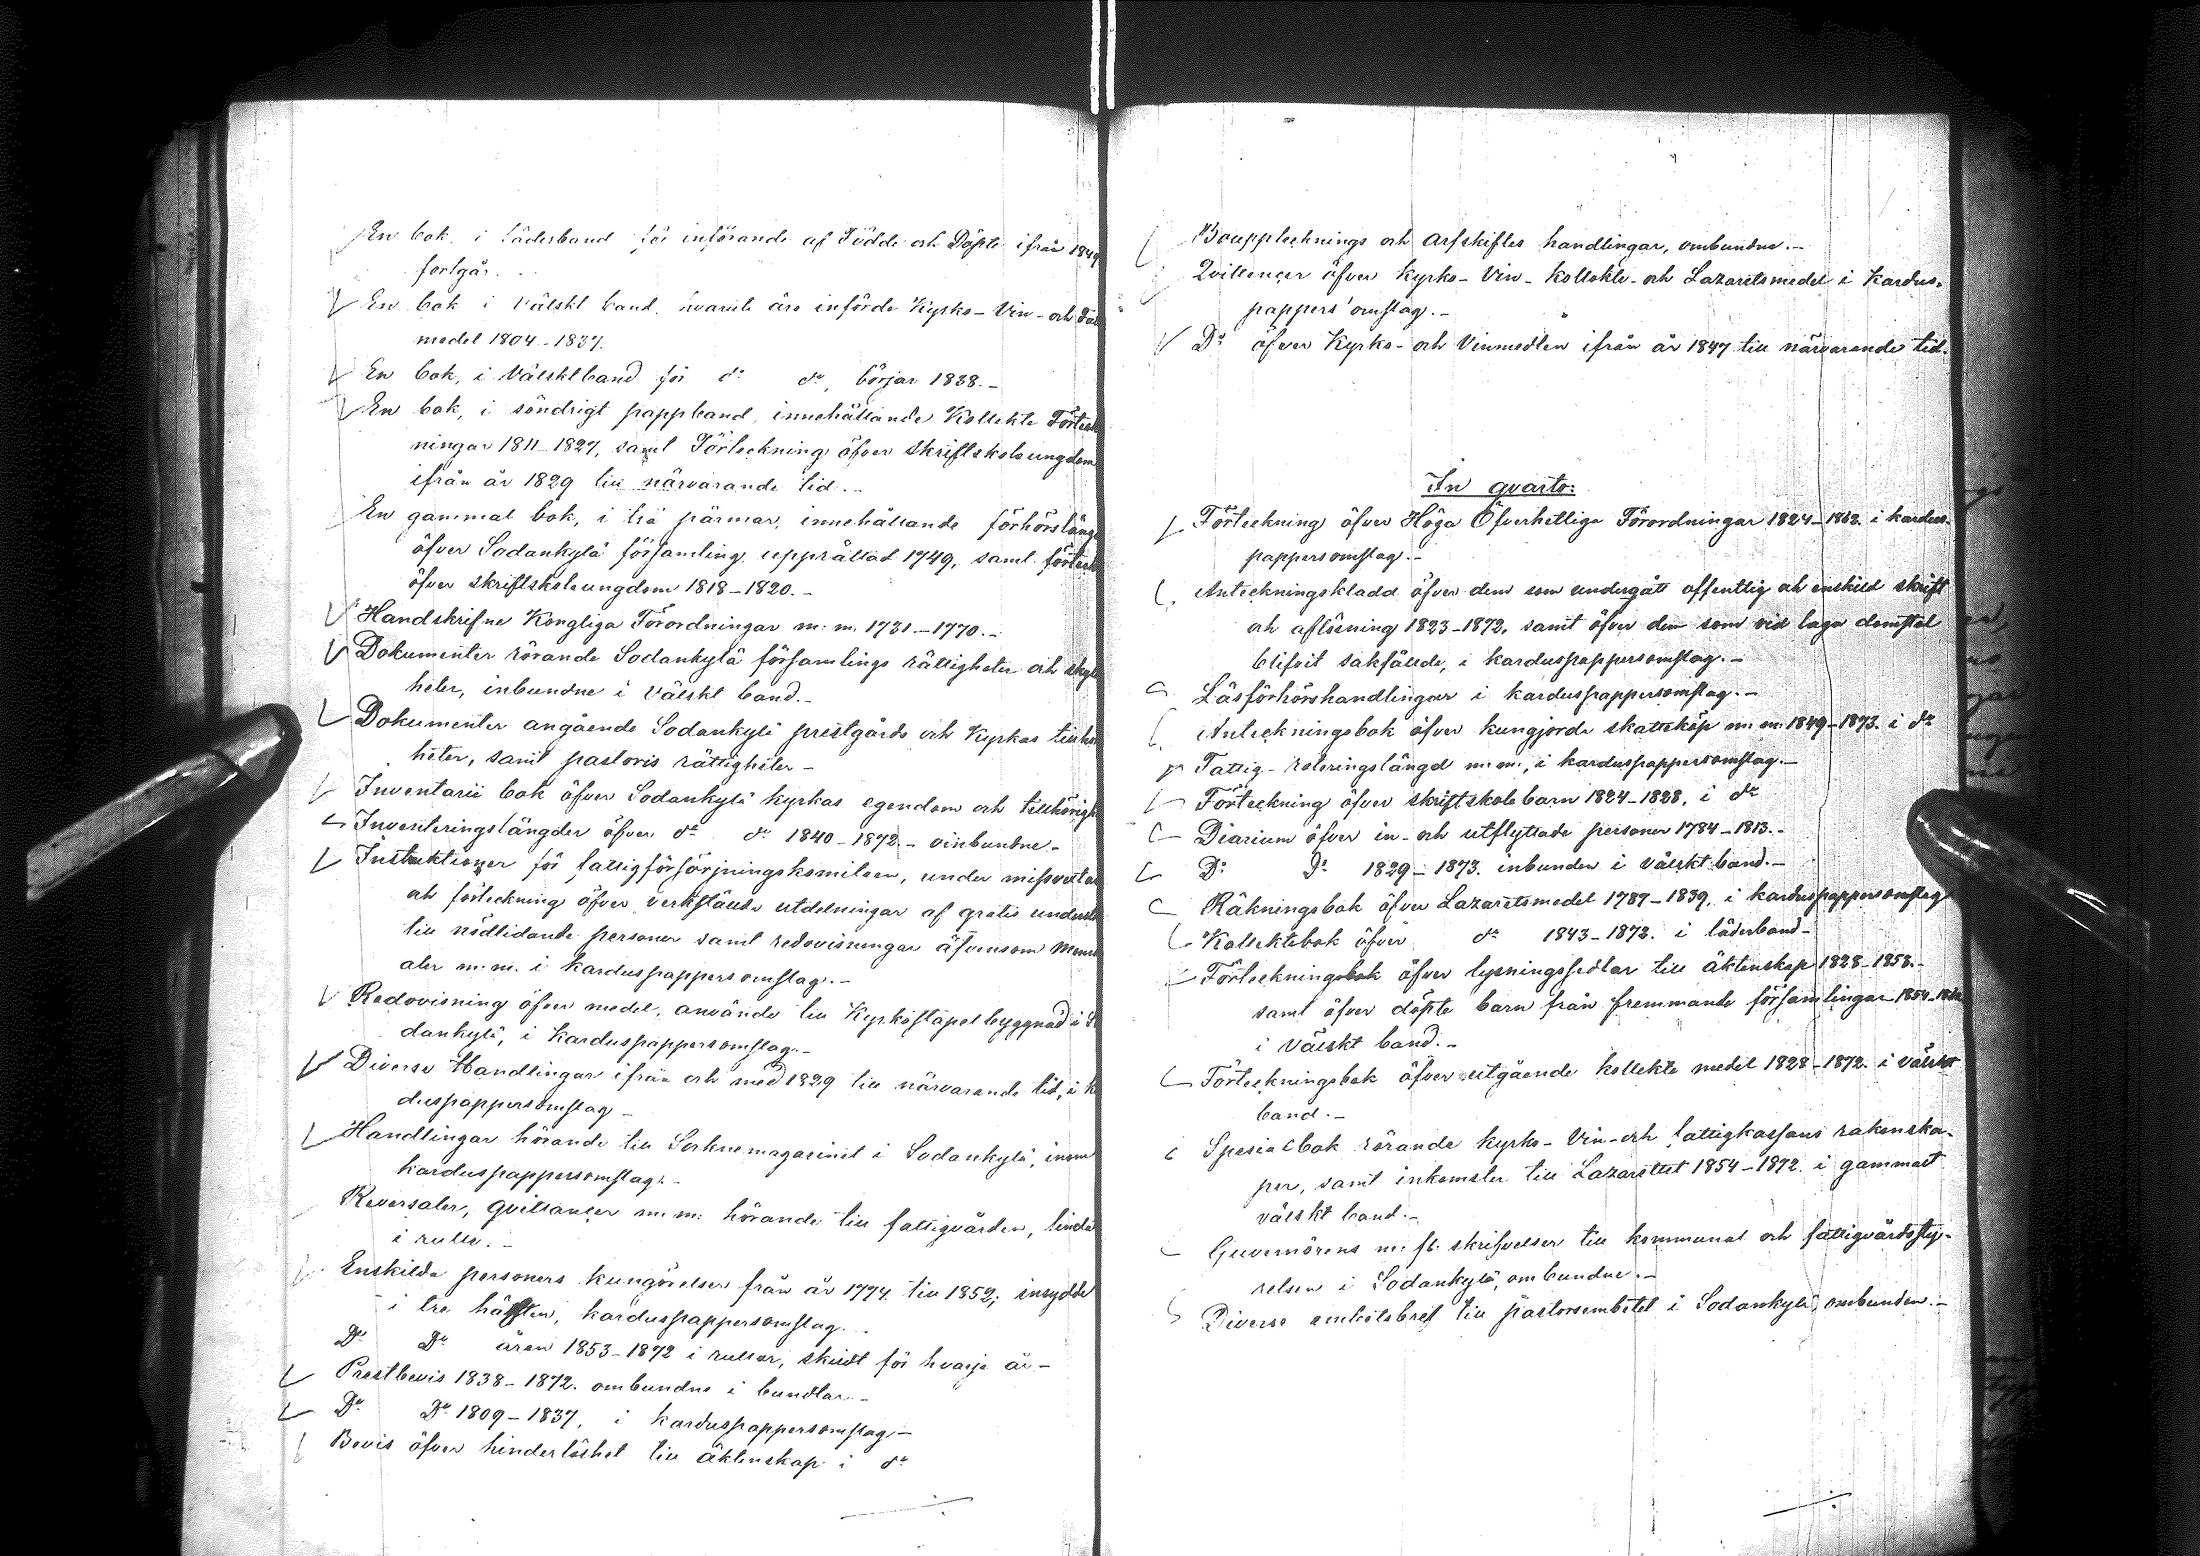 En bok i läderband för införande af Födde och Döpte ifrån 1849
fortgår.
En bok i välskt band, hvaruti äro införde Kyrko- Vin- och
medel 1804-1837.
En bok, i välsktband för do do, börjar 1838.-
En bok, i söndrigt pappband, innehållande Kollekte Förteck
ningar 1811-1827, samt Förteckning öfver skriftskoleungdom
ifrån år 1829 till närvarande tid.-
En gammal bok, i trä pärmar, innehållande förhörsläng
öfver Sodankylä församling, upprättad 1749, samt förteck
öfver skriftskoleungdom 1818-1820.-
Handskrifne Kongliga Förordningar m. m. 1731-1770.-
Dokumenter rörande Sodankylä församlings rättigheter och skyl
heter, inbundne i välskt band.-
Dokumenter angående Sodankylä prestgårds och Kyrkas tillhö
heter, samt pastoris rättigheter-
Inventarii bok öfver Sodankylä kyrkas egendom och tillhörigh
Inventeringslängder öfver do do 1840-1872.- oinbundne-
Instruktioner för fattigförsörjningskomiteen, under missvextår
och förteckning öfver verkstälde utdelningar af gratis underst
till nödlidande personer samt redovisningar äfvensom Memo
aler m.m. i karduspappersomslag.-
Redovisning öfver medel, använde till Kyrkostapelbyggnad i So
dankylä, i karduspappersomslag.-
Diverse Handlingar ifrån och med 1829 till närvarande tid, i k
duspappersomslag-
Handlingar hörande till Socknemagasinet i Sodankylä, inom
karduspappersomslag.-
Reversaler, qvittancer m.m: hörande till fattigvården,
i rulle.-
Enskilda personers kungörelser från år 1774 till 1852; insydde
i tre häften, karduspappersomslag.-
Do Do åren 1853-1872 i rullar, skildt för hvarje år-
Prestbevis 1838-1872. ombundne i bundtar.-
Do Do 1809-1837, i karduspappersomslag-
Bevis öfver hinderlöshet till äktenskap i do
Boupptecknings och Arfskiftes handlingar, ombundne.-
Qvittencer öfver Kyrko- Vin- Kollekte- och Lazaretsmedel i Kardus-
pappers omslag.-
Do öfver Kyrko- och Vinmedlen ifrån år 1847 till närvarande tid.
In qvarto:
Förteckning öfver Höga Öfverhetliga Förordningar 1824-1862. i kardus-
pappersomslag.-
Anteckningskladd öfver dem som undergått offentlig och enskild skrift
och aflösning 1823-1872. samt öfver dem som vid laga domstol
blifvit sakfälde, i karduspappersomslag.-
Läsförhörshandlingar i karduspappersomslag.-
Anteckningsbok öfver kungjorde skatteköp m.m. 1849-1873. i do
Fattig-roteringslängd m.m., i karduspappersomslag.-
Förteckning öfver skriftskolebarn 1824-1828, i do
Diarium öfver in- och utflyttade personer 1784-1813.-
Do Do 1829-1873. inbunden i välskt band.-
Räkningsbok öfver Lazaretsmedel 1787-1839, i karduspappersomslag
Kollektebok öfver do 1843-1872. i läderband-
Förteckningsbok öfver lysningssedlar till äktenskap 1828-1858.-
samt öfver döpte barn från fremmande församlingar 1854-
i välskt band.-
Förteckningsbok öfver utgående kollekte medel 1828-1872. i välskt
band.-
Spesialbok rörande kyrko- Vin- och fattigkassans räkenska-
per, samt inkomster till Lazarettet 1854-1872. i gammalt
välskt band.-
Guvernörens m. fl. skrifvelser till kommunal och fattigvårdssty-
relsen i Sodankylä, ombundne.-
Diverse embetsbref till pastorsembetet i Sodankylä, ombunden.-